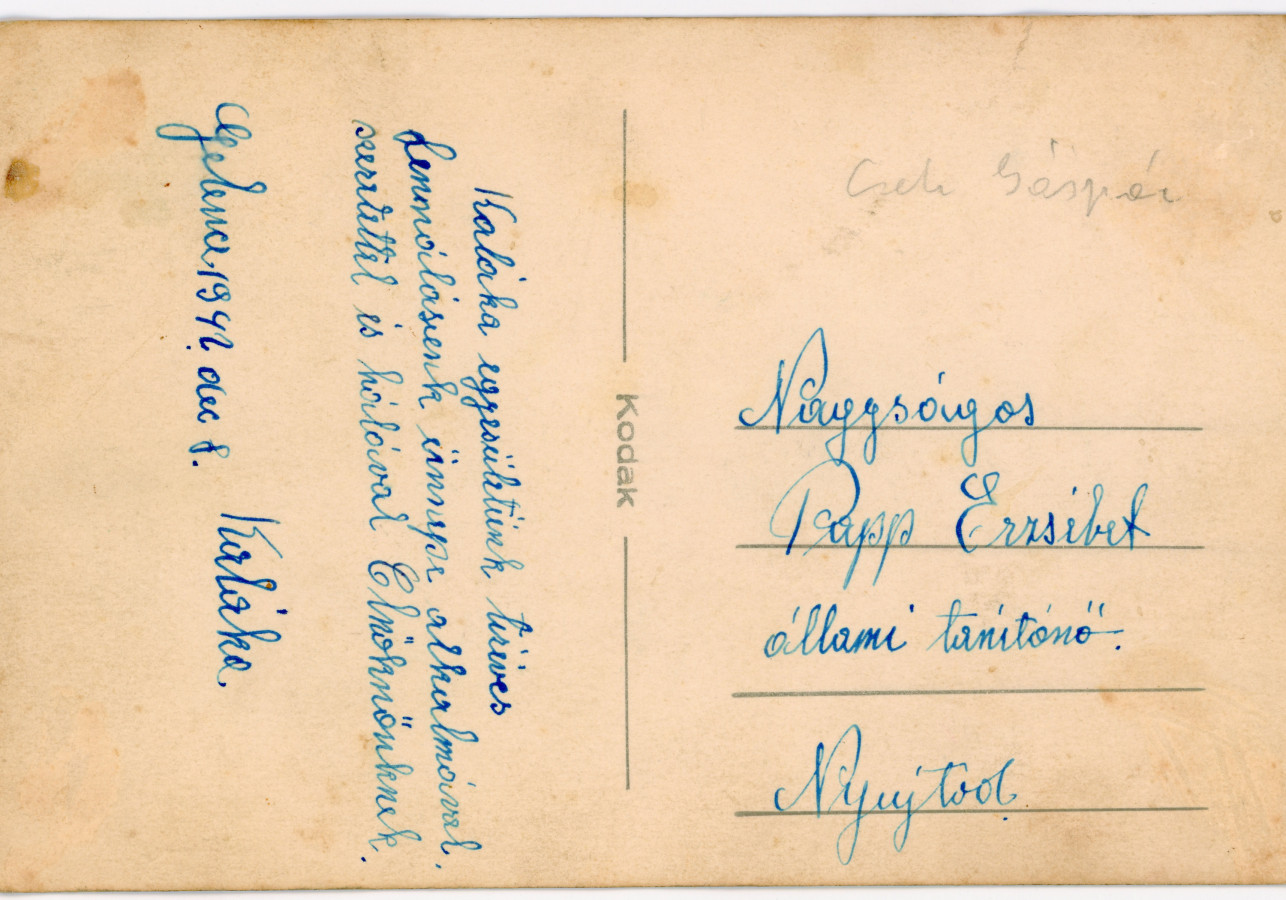 Kaláka egyesületünk tízéves
fennálásenk ünnepe alkalmával.
szeretettel és hálával Elnöknőnknek.
Gelence, 1942. dec 8.
Kaláka.
Kodak
Cseh Gáspár
Nagyságos
Papp Erzsébet
állami tanítónő.
Nyujtod